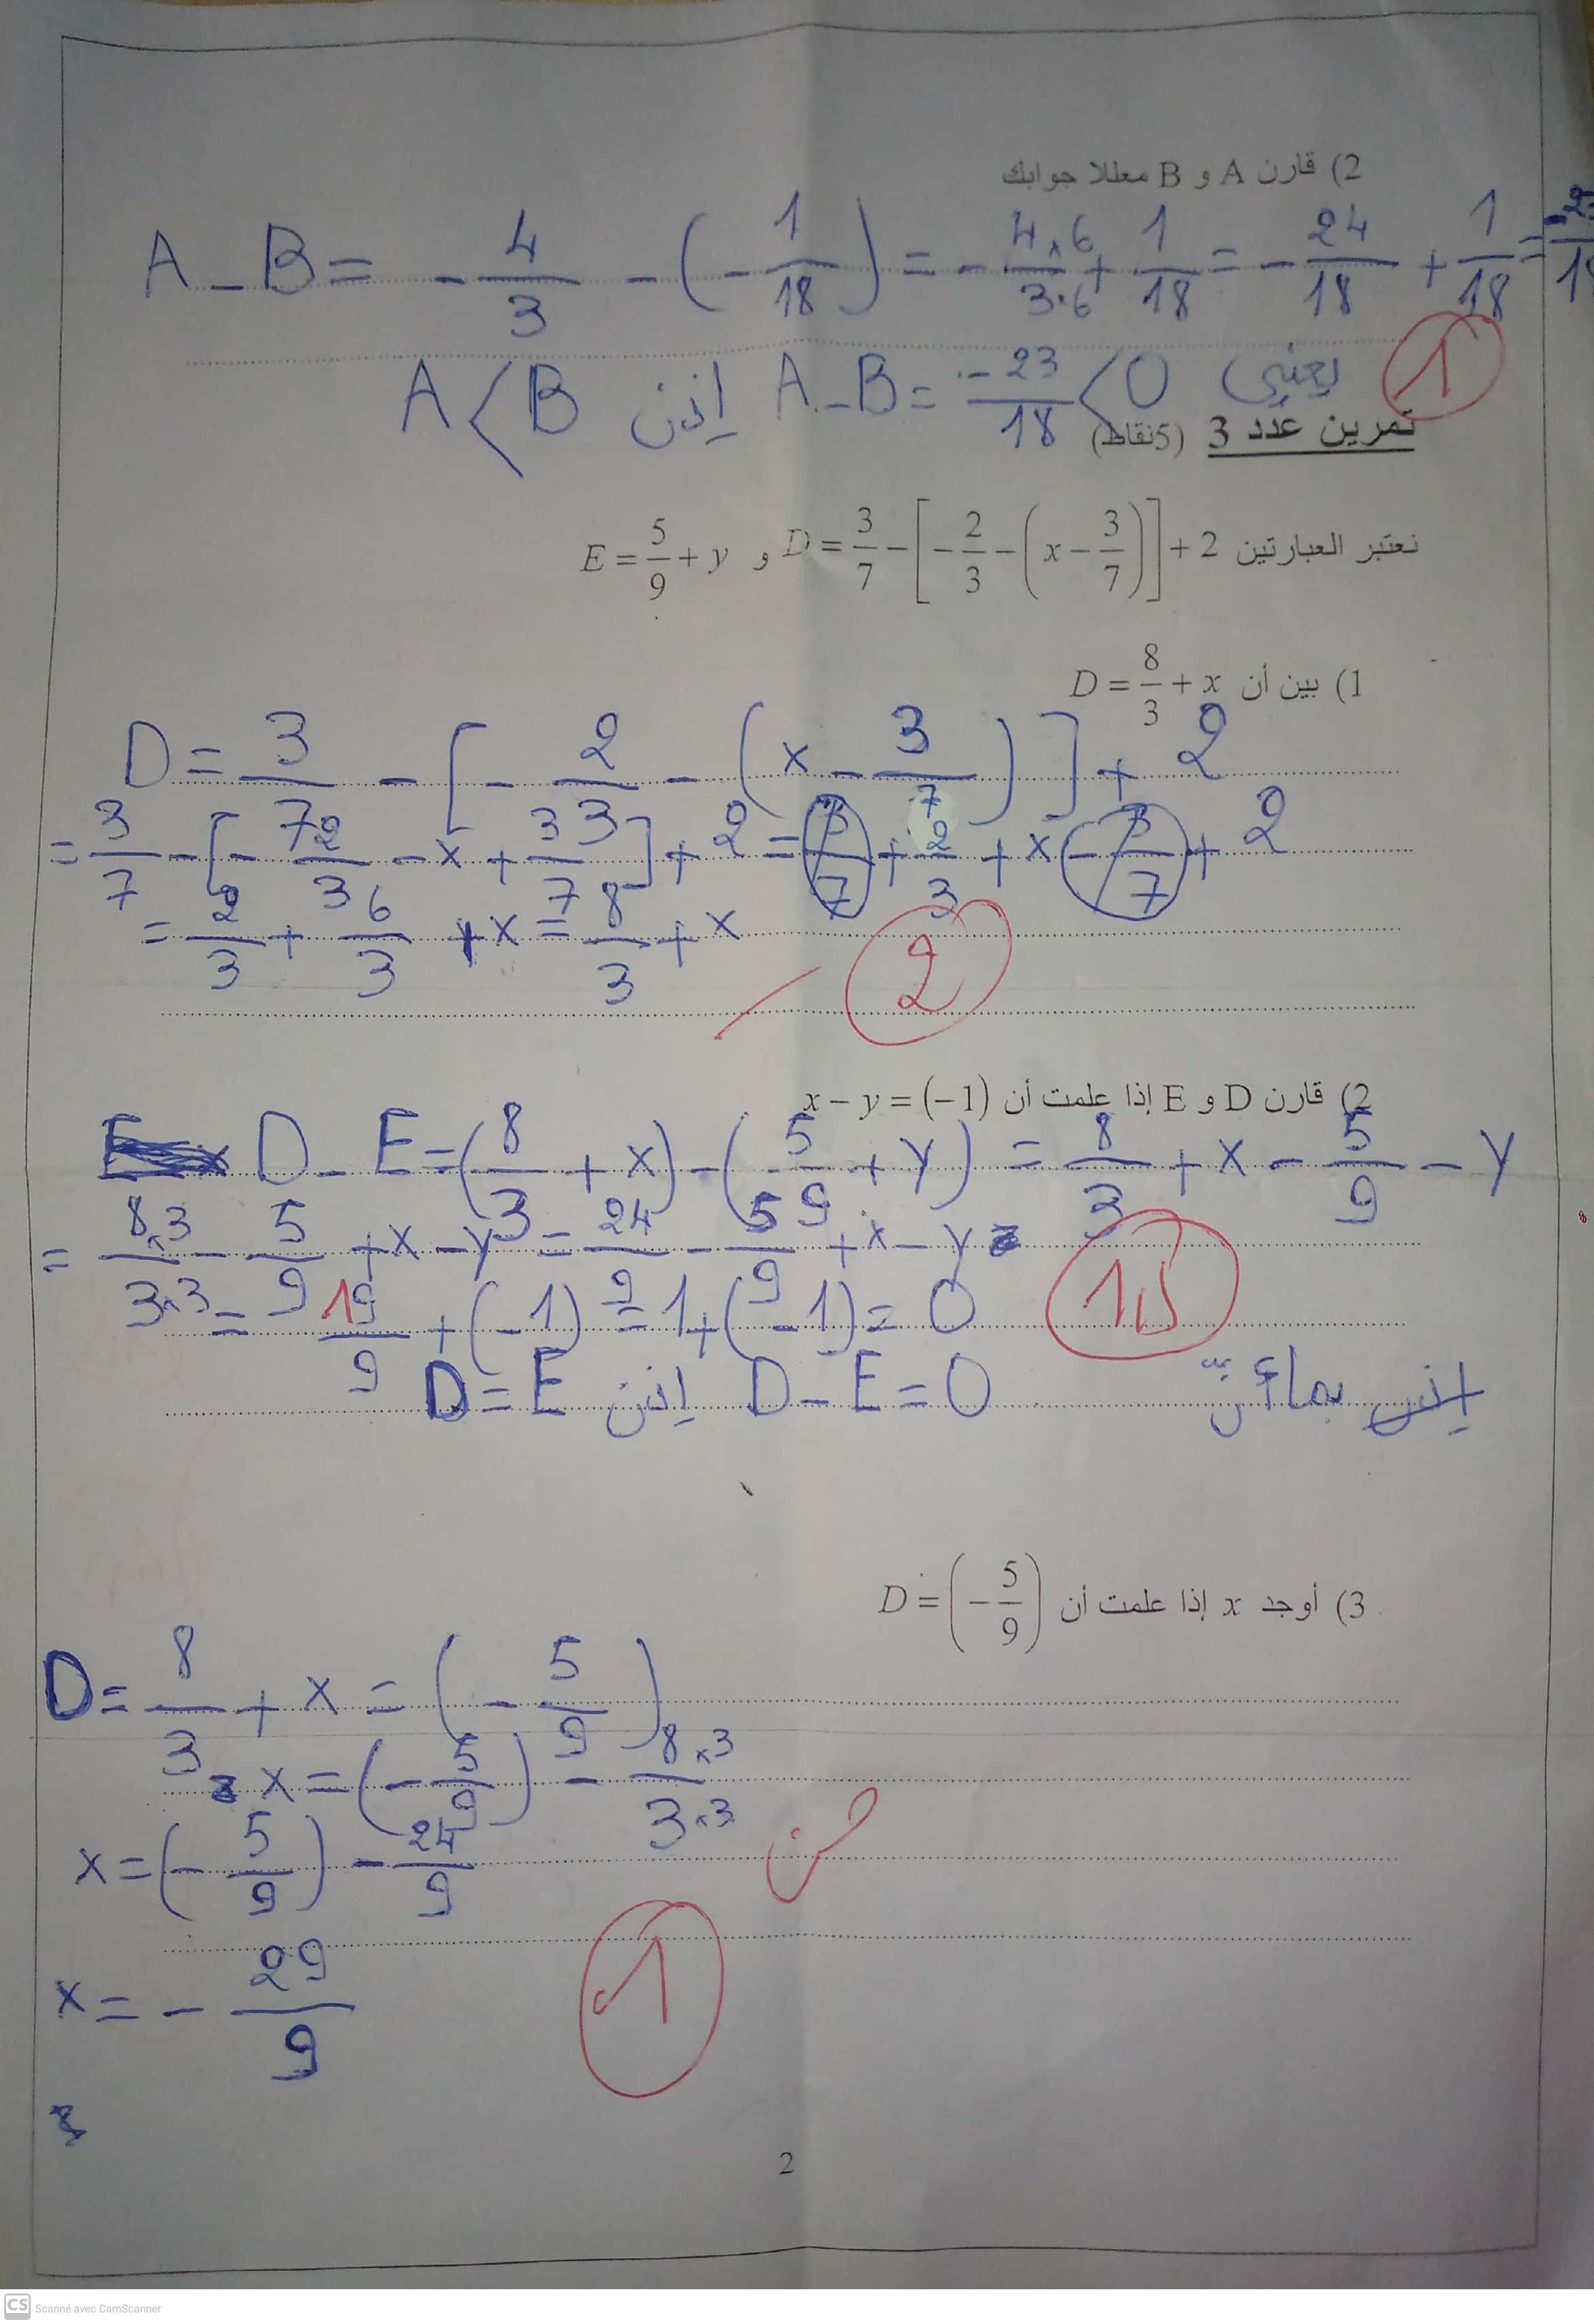 2) قارن A و B معللا جوابك
A - B = - 4/3 - (- 1/18) = - 4×6/3×6 + 1/18 = - 24/18 + 1/18 =
يعني A - B = -23/18 < 0 إذن A < B
1
تمرين عدد 3 (5نقاط)
نعتبر العبارتين D = 3/7 - [- 2/3 - (x - 3/7)] + 2 و E = 5/9 + y
1) بين أن D = 8/3 + x
D = 3/7 - [- 2/3 - (x - 3/7)] + 2
= 3/7 - [- 2/3 - x + 3/7] + 2 = 3/7 + 2/3 + x - 3/7 + 2
= 2/3 + 6/3 + x = 8/3 + x
2
2) قارن D و E إذا علمت أن x - y = (-1)
D - E = (8/3 + x) - (5/9 + y) = 8/3 + x - 5/9 - y
= 8×3/3×3 - 5/9 + x - y = 24/9 - 5/9 + x - y
= 19/9 + (-1) = 1 + (-1) = 0
بما أنّ D - E = 0 إذن D = E
3) أوجد x إذا علمت أن D = (- 5/9)
D = 8/3 + x = (- 5/9)
x = (- 5/9) - 8×3/3×3
x = (- 5/9) - 24/9
x = - 29/9
1
2
CS Scanné avec CamScanner